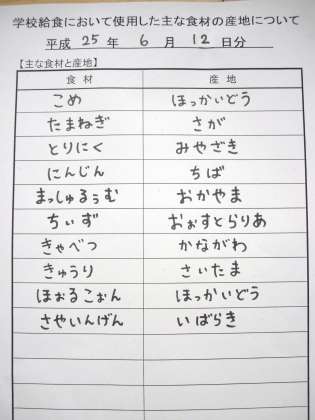 学校給食において使用した主な食材の産地について
平成 25 年 6 月 12 日分
【主な食材と産地】
食材 産地
こめ ほっかいどう
たまねぎ さが
とりにく みやざき
にんじん ちば
まっしゅるぅむ おかやま
ちぃず おぉすとらりあ
きゃべつ かながわ
きゅうり さいたま
ほぉるこぉん ほっかいどう
さやいんげん いばらき